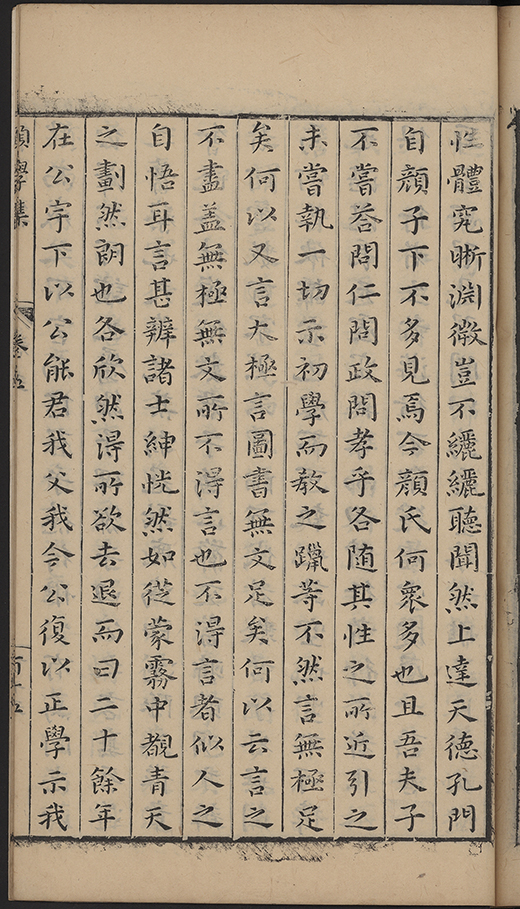 性體究晰淵微豈不纚纚聽聞然上達天德孔門
自顏子下不多見焉今顏氏何衆多也且吾夫子
不嘗荅問仁問政問孝乎各随其性之所近引之
未嘗執一切示初學而教之躐等不然言無極足
矣何以又言太極言圖書無文足矣何以云言之
不盡盖無極無文所不淂言也不淂言者似人之
自悟耳言甚辨諸士紳恍然如從蒙霧中覩青天
之劃然朗也各欣然淂所欲去退而曰二十餘年
在公宇下以公能君我父我今公復以正學示我
學集
卷之五